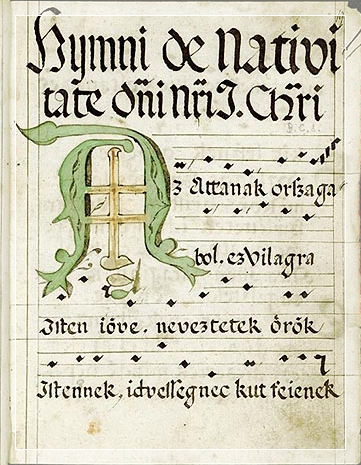 Hymni de Nativi
tate dñi nr̃i J. Chr̃i
B.C.1.
Az Attanak orszaga
bol. ez Vilagra
Isten iöve. neveztetek örök
Istennek, idvessegnec kut feienek